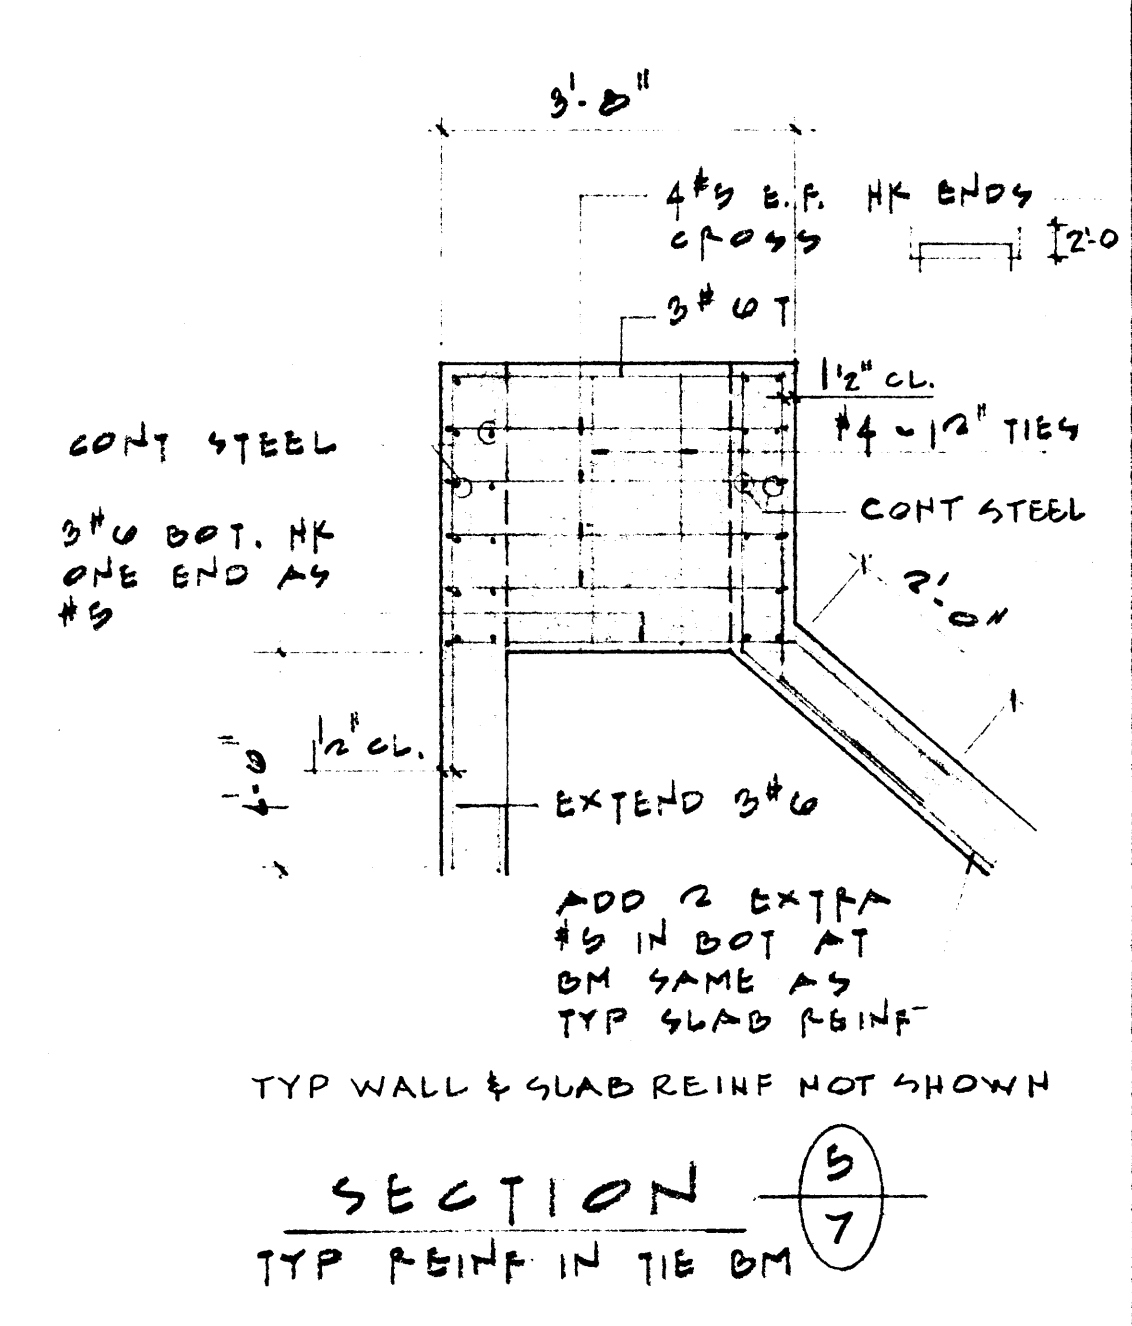 3'-8"
4 #5 E.F. HK ENDS
CROSS
2'-0
3 #6 T
1 1/2" CL.
#4 ~ 12" TIES
CONT STEEL
CONT STEEL
3 #6 BOT. HK
ONE END AS
#5
2'-0"
1 1/2" CL.
EXTEND 3 #6
ADD 2 EXTRA
#5 IN BOT AT
BM SAME AS
TYP SLAB REINF
TYP WALL & SLAB REINF NOT SHOWN
SECTION
5
7
TYP REINF IN TIE BM